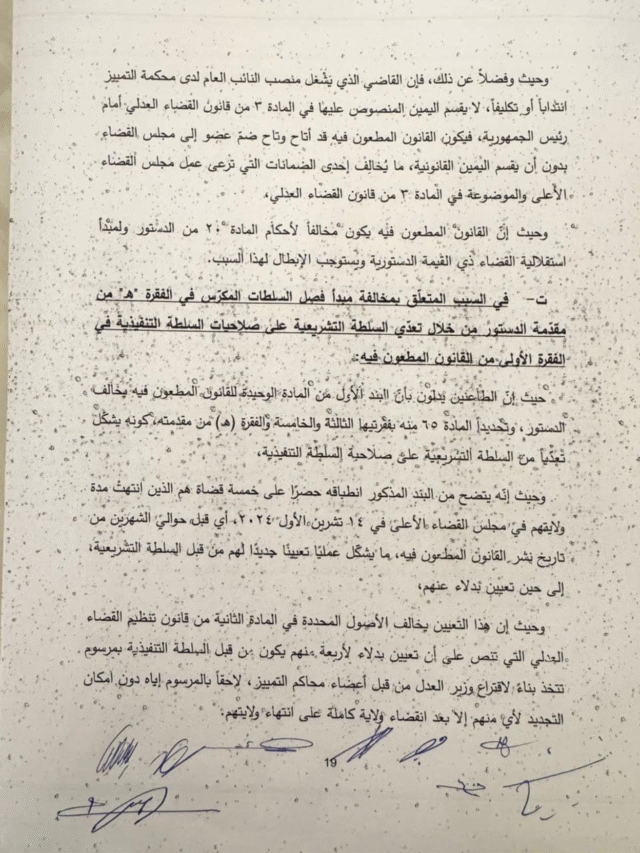 وحيث وفضلاً عن ذلك، فإن القاضي الذي يَشْغل منصب النائب العام لدى محكمة التمييز
انتداباً أو تكليفاً، لا يقسم اليمين المنصوص عليها في المادة ٣ من قانون القضاء العدلي أمام
رئيس الجمهورية، فيكون القانون المطعون فيه قد أتاح وتاح ضمّ عضو إلى مجلس القضاء
بدون أن يقسم اليمين القانونية، ما يُخالف إحدى الضمانات التي ترعى عمل مجلس القضاء
الأعلى والموضوعة في المادة ٣ من قانون القضاء العدلي،
وحيث إنّ القانون المطعون فيه يكون مخالفاً لأحكام المادة ٢٠ من الدستور ولمبدأ
استقلالية القضاء ذي القيمة الدستورية ويستوجب الإبطال لهذا السبب.
ت- في السبب المتعلّق بمخالفة مبدأ فصل السلطات المكرّس في الفقرة "هـ" من
مقدّمة الدستور من خلال تعدّي السلطة التشريعية على صلاحيات السلطة التنفيذية في
الفقرة الأولى من القانون المطعون فيه:
حيث إنّ الطاعنين يدلون بأنّ البند الأول من المادة الوحيدة للقانون المطعون فيه يخالف
الدستور، وتحديداً المادة ٦٥ منه بفقرتيها الثالثة والخامسة والفقرة (هـ) من مقدمته، كونه يشكّل
تعدّياً من السلطة التشريعية على صلاحية السلطة التنفيذية،
وحيث إنّه يتضح من البند المذكور انطباقه حصرًا على خمسة قضاة هم الذين انتهتْ مدة
ولايتهم في مجلس القضاء الأعلى في ١٤ تشرين الأول ٢٠٢٤، أي قبل حواليْ الشهرين من
تاريخ نشر القانون المطعون فيه، ما يشكّل عمليًا تعيينًا جديدًا لهم من قبل السلطة التشريعية،
إلى حين تعيين بدلاء عنهم،
وحيث إن هذا التعيين يخالف الأصول المحددة في المادة الثانية من قانون تنظيم القضاء
العدلي التي تنص على أن تعيين بدلاء لأربعة منهم يكون من قبل السلطة التنفيذية بمرسوم
تتخذ بناءً لاقتراع وزير العدل من قبل أعضاء محاكم التمييز، لاحقاً بالمرسوم إياه دون امكان
التجديد لأي منهم إلا بعد انقضاء ولاية كاملة على انتهاء ولايتهم.
19